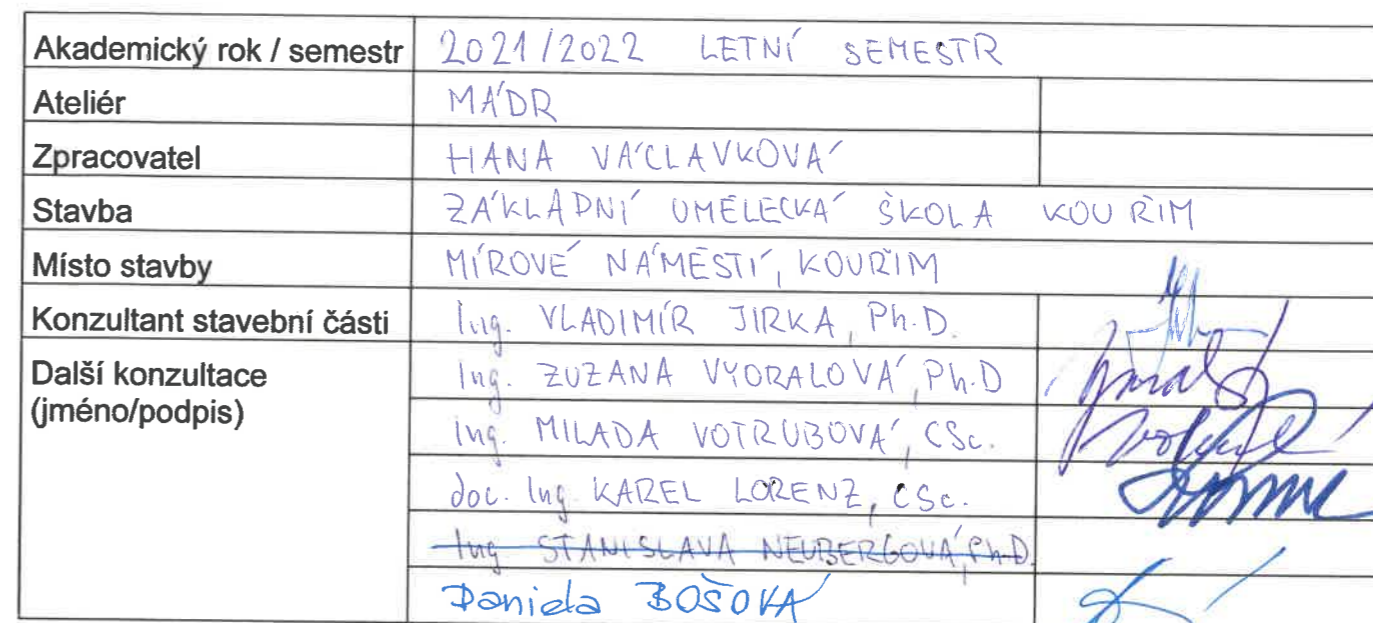 Akademický rok / semestr 2021/2022 LETNÍ SEMESTR
Ateliér MÁDR
Zpracovatel HANA VÁCLAVKOVÁ
Stavba ZÁKLADNÍ UMĚLECKÁ ŠKOLA KOUŘIM
Místo stavby MÍROVÉ NÁMĚSTÍ, KOUŘIM
Konzultant stavební části Ing. VLADIMÍR JIRKA, Ph.D.
Další konzultace Ing. ZUZANA VYORALOVÁ, Ph.D
(jméno/podpis) Ing. MILADA VOTRUBOVÁ, CSc.
doc. Ing. KAREL LORENZ, CSc.
Ing STANISLAVA NEUBERGOVÁ, Ph.D.
Daniela BOŠOVÁ